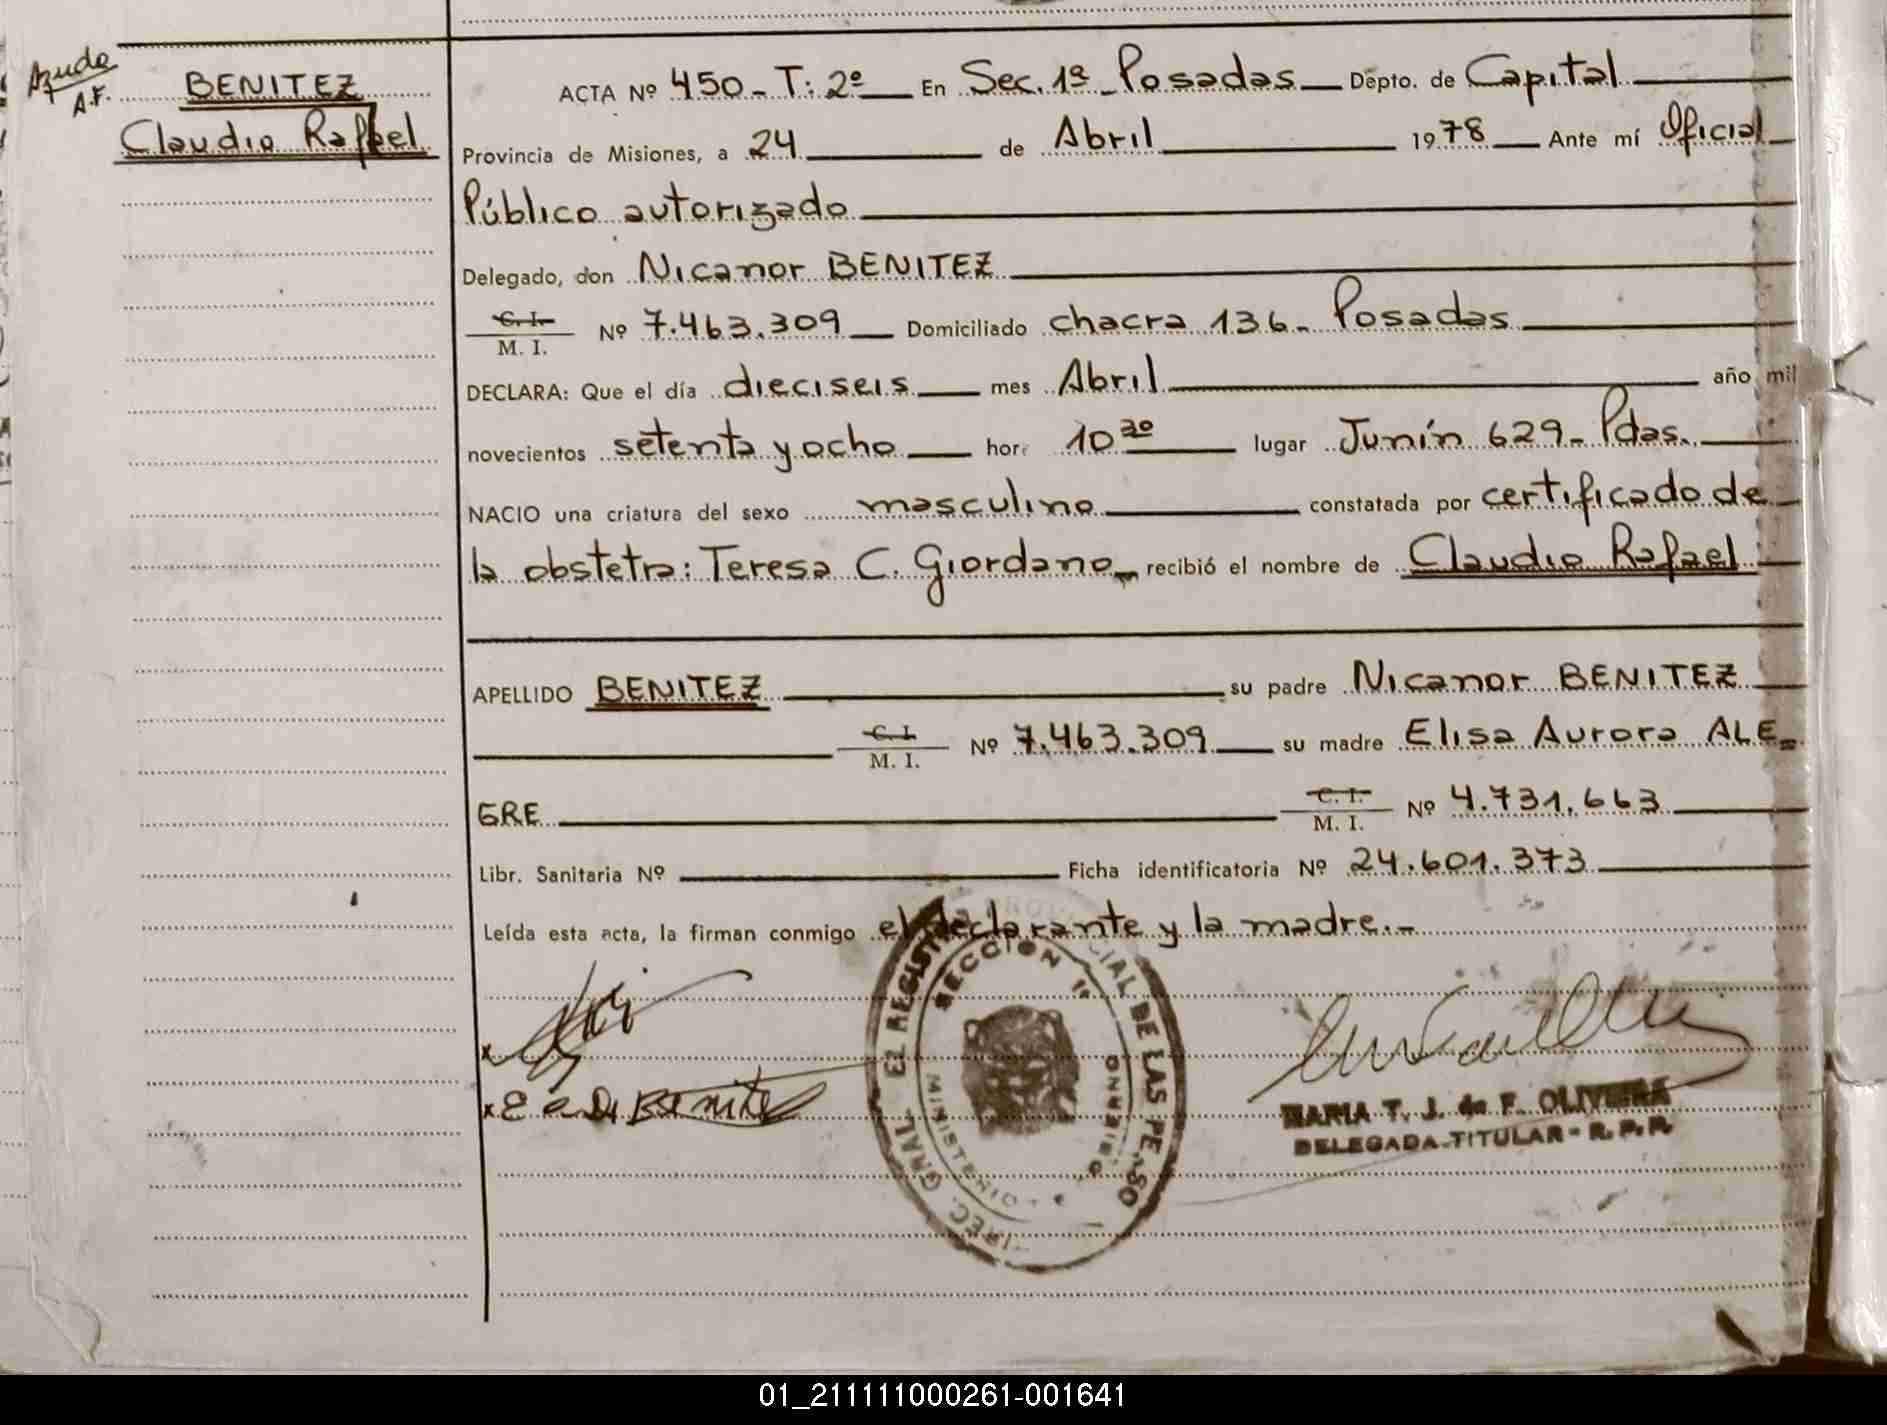 Ayuda
A.F.
BENITEZ
Claudio Rafael
ACTA Nº 450_ T: 2º En Sec. 1ª _ Posadas Depto. de Capital
Provincia de Misiones, a 24 de Abril 1978 Ante mí Oficial
Público autorizado
Delegado, don Nicanor BENITEZ
C. I.
M. I. Nº 7.463.309 Domiciliado chacra 136_ Posadas
DECLARA: Que el día dieciseis mes Abril año mil
novecientos setenta y ocho hor 10 30 lugar Junín 629_ Pdas.
NACIO una criatura del sexo masculino constatada por certificado de
la obstetra: Teresa C. Giordano recibió el nombre de Claudio Rafael
APELLIDO BENITEZ su padre Nicanor BENITEZ
C. I.
M. I. Nº 7.463.309 su madre Elisa Aurora ALE=
GRE C. I.
M. I. Nº 4.731.663
Libr. Sanitaria Nº Ficha identificatoria Nº 24.601.373
Leída esta acta, la firman conmigo el declarante y la madre.-
x
x E A D Benitez
SECCION 1ª
MINISTERIO
GOBIERNO
DIREC. GRAL. EL REGISTRO PROVINCIAL DE LAS PERSO
MARIA T. J. de F. OLIVEIRA
DELEGADA TITULAR - R. P. P.
01_211111000261-001641